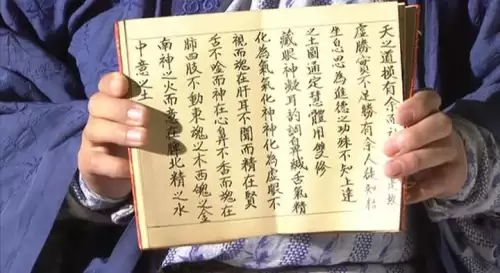 天之道損有余而
虛勝實不足勝有余人徒知枯
生息思為進德之功殊不知上達
之士圓通定慧體用雙修
藏眼神凝耳韵調鼻緘舌氣精
化為氣氣化神神化為虛眼不
視而魂在肝耳不聞而精在賢
舌不唫而神在心鼻不香而魄在
肺四肢不動東魂之木西魄之金
南神之火而意在脾北精之水
中意之土